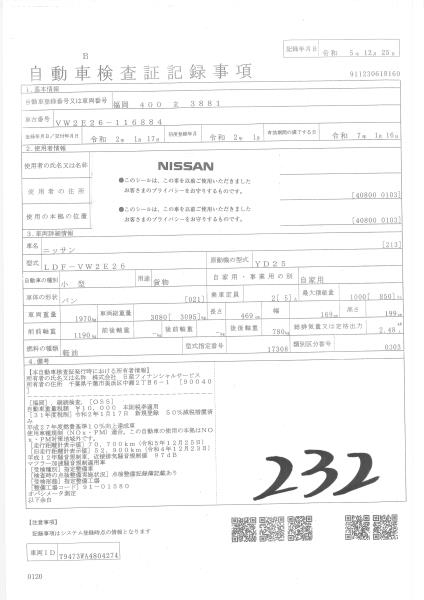 B
記録年月日 令和 5年 12月 25日
自動車検査証記録事項
911230618160
1.基本情報
自動車登録番号又は車両番号 福岡 400 き 3881
車台番号 VW2E26-116884
登録年月日/交付年月日 令和 2年 1月 17日 初度登録年月 令和 2年 1月 有効期間の満了する日 令和 7年 1月 16日
2.使用者情報
使用者の氏名又は名称
NISSAN
●このシールは、この車を以前ご使用いただきました
お客さまのプライバシーをお守りするものです。
使用者の住所 [40800 0103]
●このシールは、この車を以前ご使用いただきました
お客さまのプライバシーをお守りするものです。
使用の本拠の位置 [40800 0103]
3.車両詳細情報
車名 ニッサン [213]
型式 LDF-VW2E26 原動機の型式 YD25
自動車の種別 小 型 用途 貨物 自家用・事業用の別 自家用
車体の形状 バン [021] 乗車定員 2[ 5]人 最大積載量 1000[ 850]kg
車両重量 1970kg 車両総重量 3080[ 3095]kg 長さ 469cm 幅 169cm 高さ 199cm
前前軸重 1190kg 前後軸重 -kg 後前軸重 -kg 後後軸重 780kg 総排気量又は定格出力 2.48
燃料の種類 軽油 型式指定番号 17308 類別区分番号 0303
4.備考
【本自動車検査証発行時における所有者情報】
所有者の氏名又は名称 株式会社 日産フィナンシャルサービス
所有者の住所 千葉県千葉市美浜区中瀬2丁目6-1 [90040
[福岡],継続検査 [OSS]
自動車重量税額 ¥10,000 本則税率適用
[31年度税制]令和2年1月17日 新規登録 50%減税措置済
み
平成27年度燃費基準10%向上達成車
使用車種規制(NOx・PM)適合,この自動車の使用の本拠はNO
x・PM対策地域外です。
[走行距離計表示値]70,700km(令和5年12月25日)
[旧走行距離計表示値]52,900km(令和4年12月23日)
平成12年騒音規制車,近接排気騒音規制値 97dB
マフラー加速騒音規制適用車
[受検種別]指定整備車
[検査時の点検整備実施状況]点検整備記録簿記載あり
[受検形態]指定整備工場
[整備工場コード]91-01580
オパシメータ測定
以下余白
232
【注意事項】
記録事項はシステム登録時点の情報となります
車両ID T9473WA4804274
0120